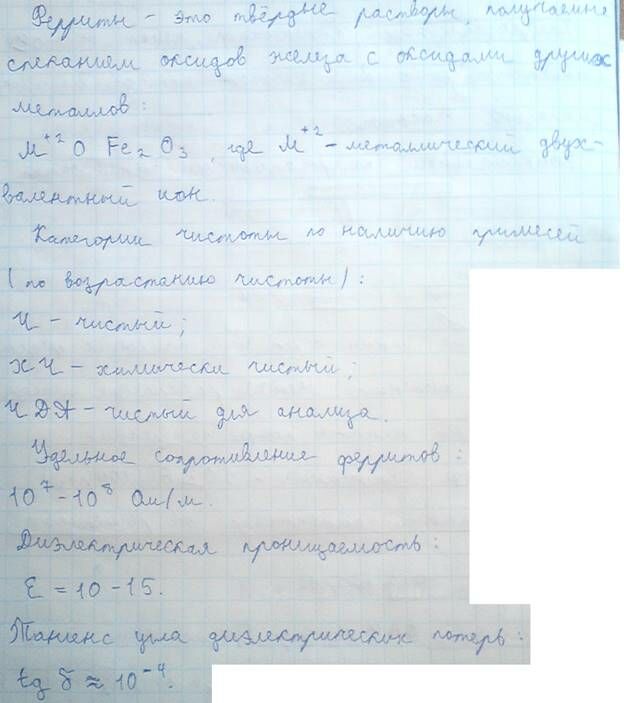 Ферриты - это твёрдые растворы, получаемые
спеканием оксидов железа с оксидами других
металлов:
M⁺²O Fe₂O₃, где M⁺² - металлический двух-
валентный ион.
Категории чистоты по наличию примесей
(по возрастанию чистоты):
Ч - чистый;
ХЧ - химически чистый;
ЧДА - чистый для анализа.
Удельное сопротивление ферритов:
10⁷-10⁸ Ом/м.
Диэлектрическая проницаемость:
ε = 10-15.
Тангенс угла диэлектрических потерь:
tg δ ≈ 10⁻⁴.